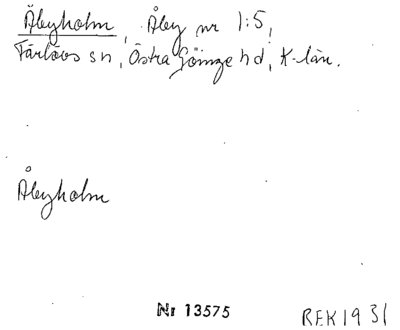 Åbyholm, Åby nr 1:5,
Färlövs sn, Östra Göinge hd, K-län.
Åbyholm
Nr 13575
REK 1931